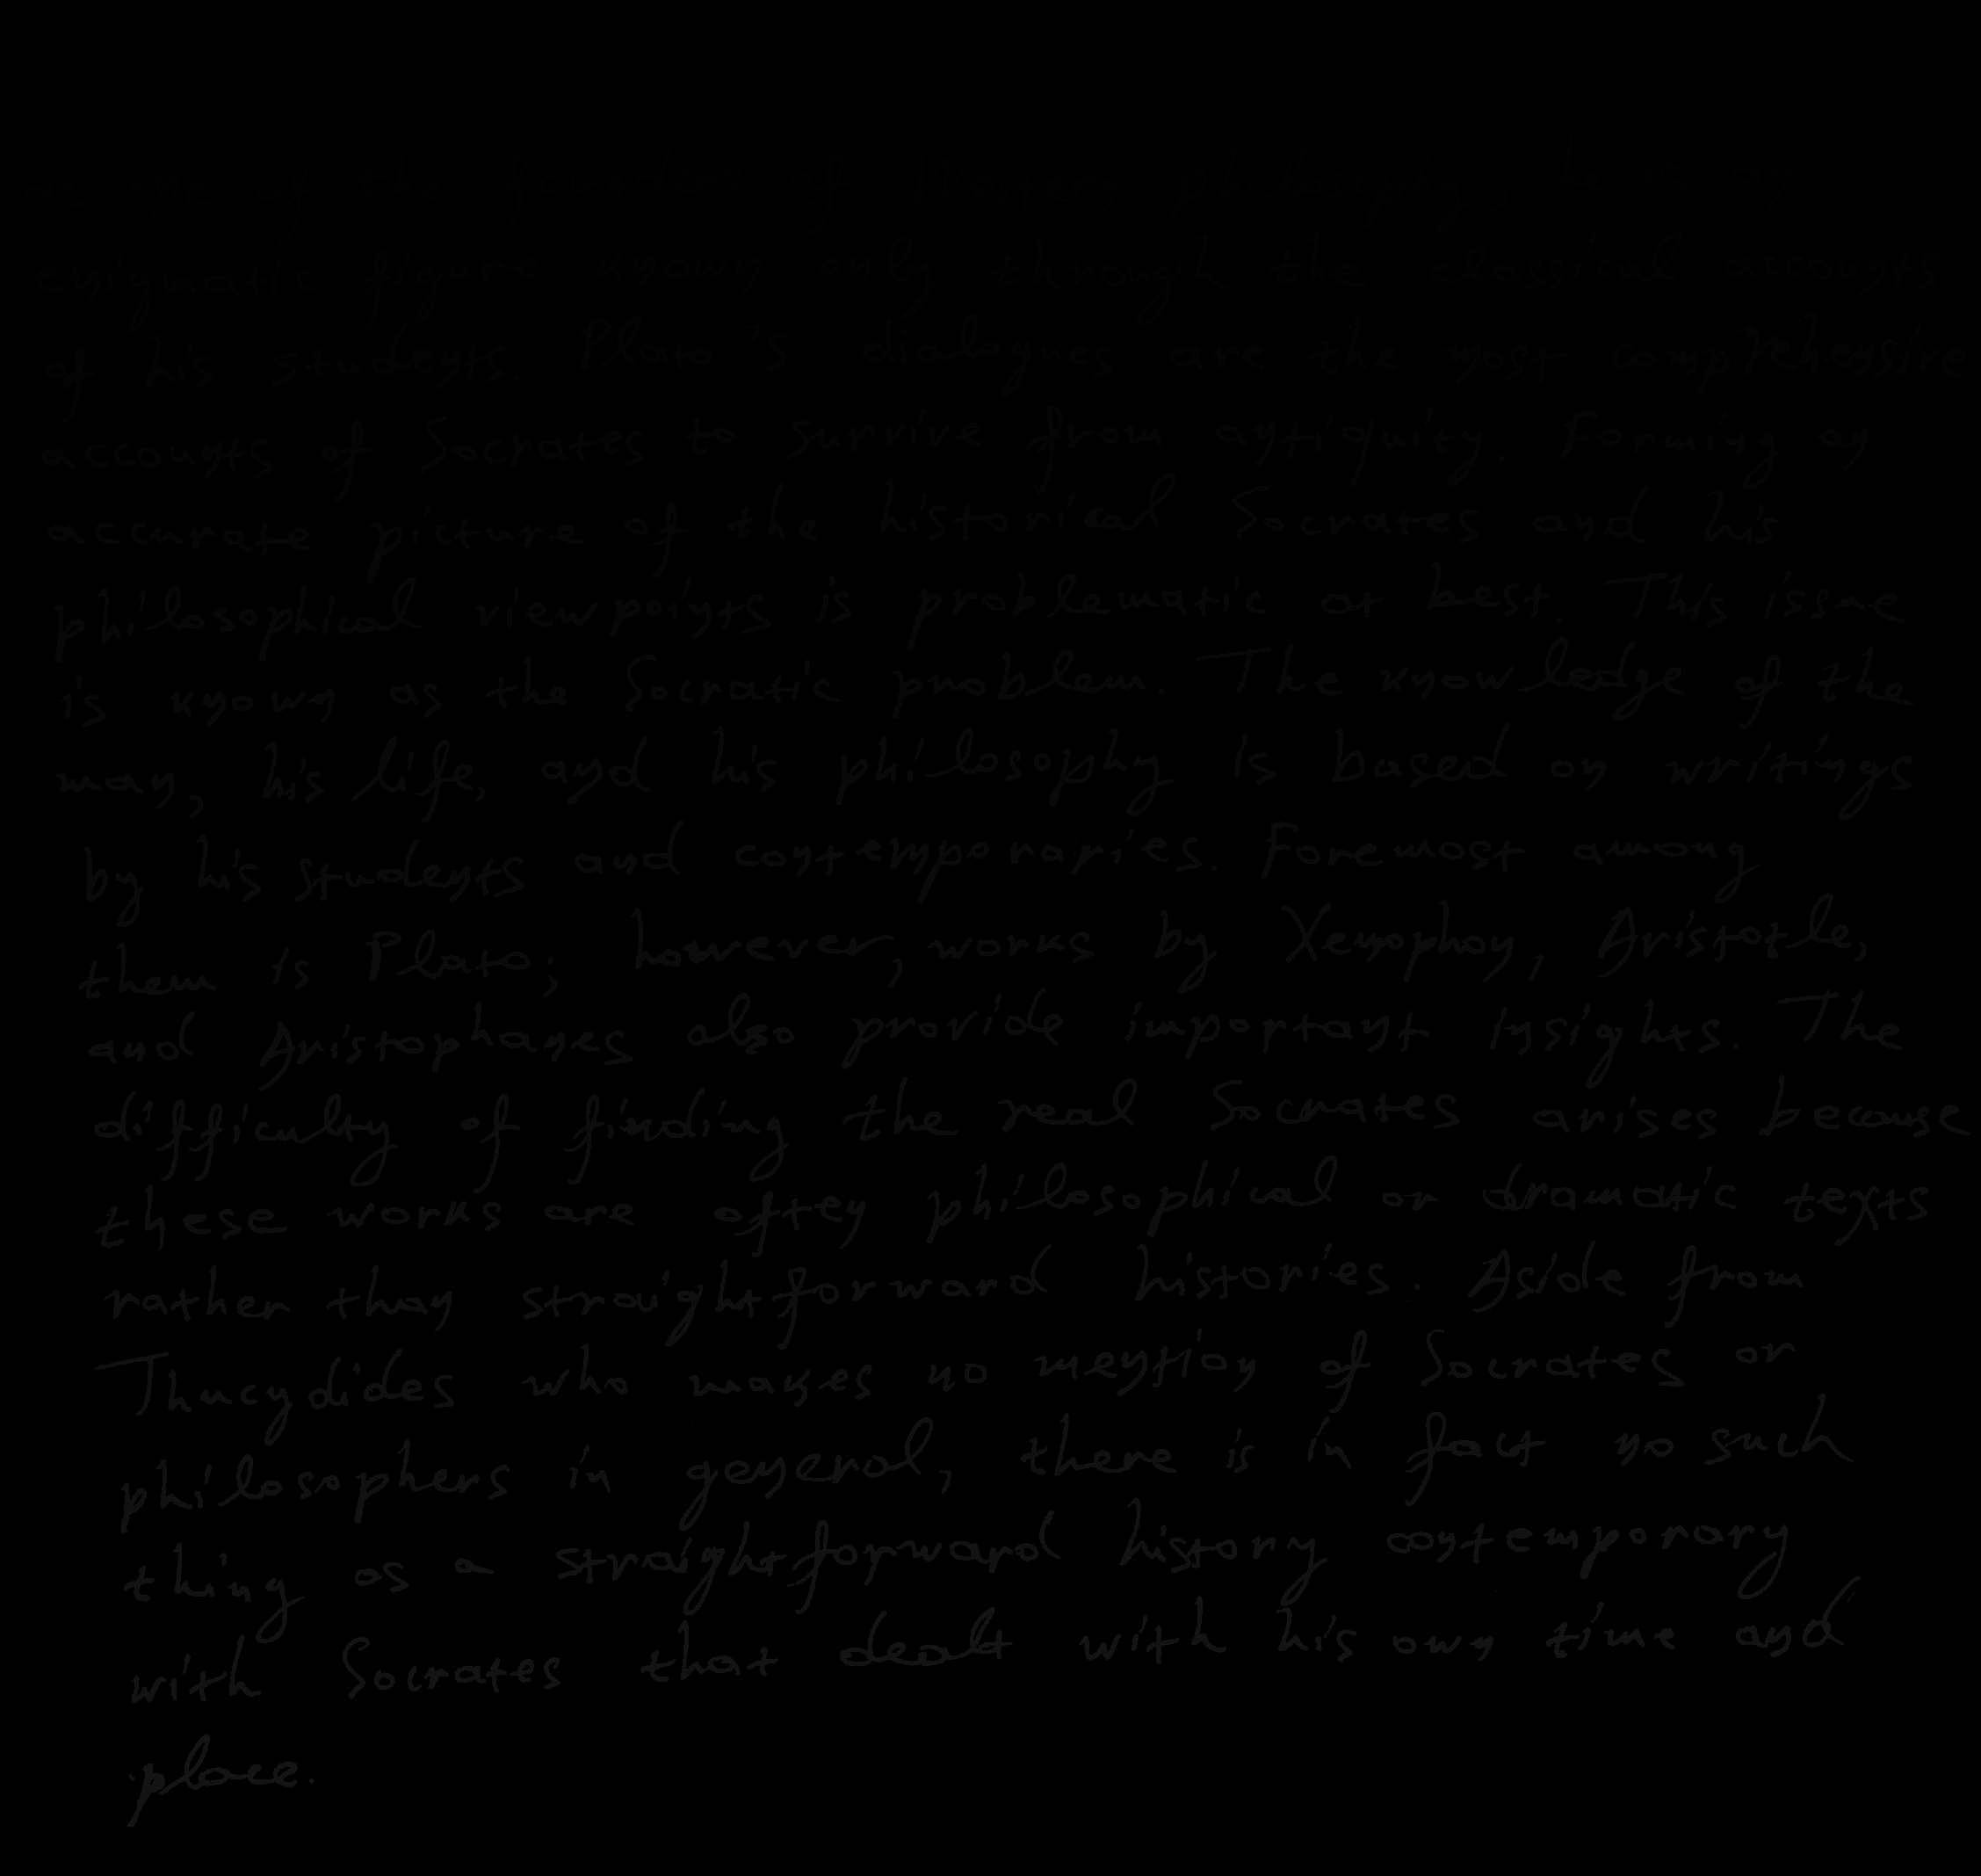 as one of the founders of Western philosophy, he is an
enigmatic figure known only through the classical accounts
of his students. Plato's dialogues are the most comprehensive
accounts of Socrates to survive from antiquity. Forming an
accurate picture of the historical Socrates and his
philosophical viewpoints is problematic at best. This issue
is known as the Socratic problem. The knowledge of the
man, his life, and his philosophy is based on writings
by his students and contemporaries. Foremost among
them is Plato; however, works by Xenophon, Aristotle,
and Aristophanes also provide important insights. The
difficulty of finding the real Socrates arises because
these works are often philosophical or dramatic texts
rather than straightforward histories. Aside from
Thucydides who makes no mention of Socrates or
philosophers in general, there is in fact no such
thing as a straightforward history contemporary
with Socrates that dealt with his own time and
place.